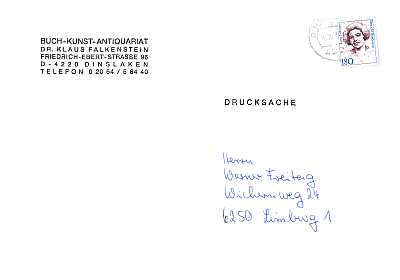 BUCH-KUNST-ANTIQUARIAT
DR. KLAUS FALKENSTEIN
FRIEDRICH-EBERT-STRASSE 96
D-4220 DINSLAKEN
TELEFON 0 20 64 / 5 64 40
180
DRUCKSACHE
Herrn
Werner Freitag
Wichernweg 24
6250 Limburg 1